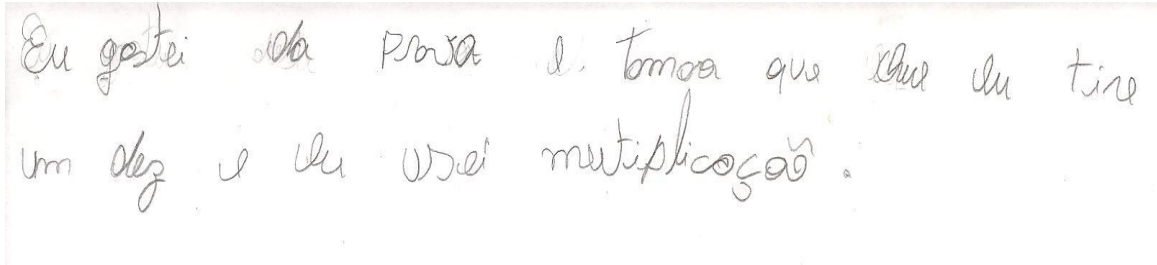 Eu gostei da prova e tomora que que eu tire
um dez e eu usei mutiplicação.